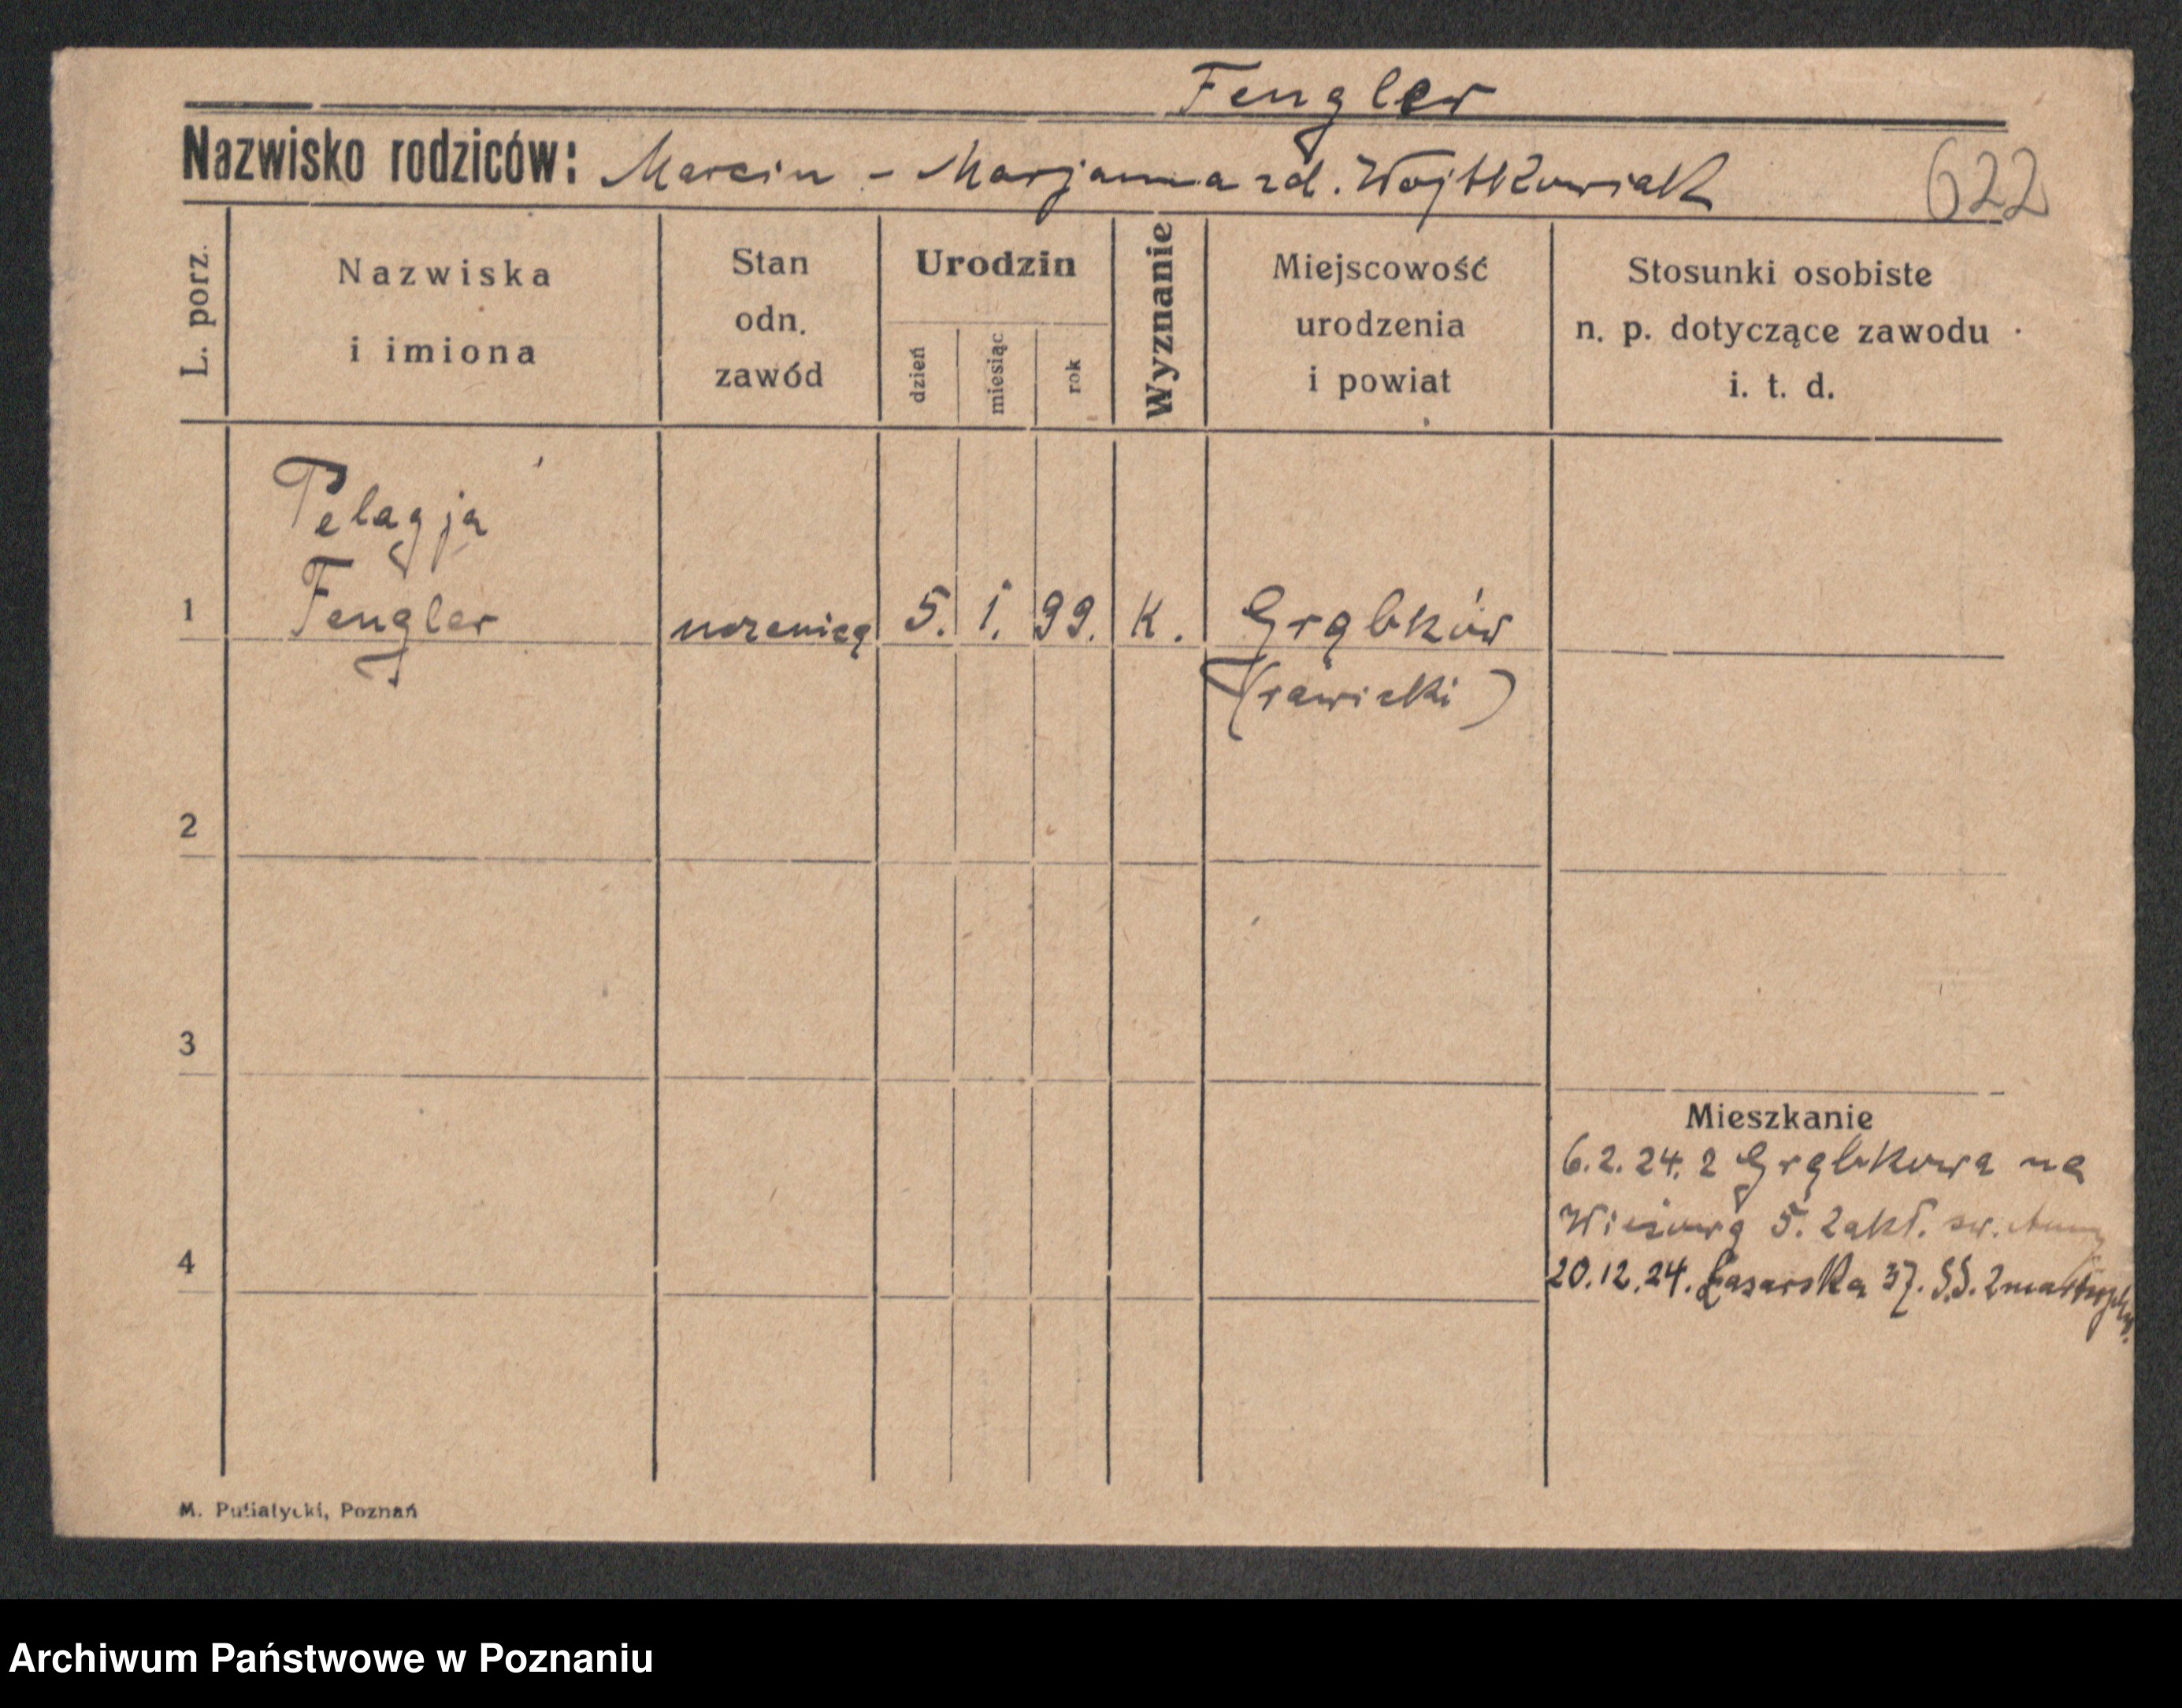 Fengler
Nazwisko rodziców: Marcin - Marjanna zd. Wojtkowiak 622
L. porz.
Nazwiska
i imiona
Stan
odn.
zawód
Urodzin
dzień
miesiąc
rok
Wyznanie
Miejscowość
urodzenia
i powiat
Stosunki osobiste
n. p. dotyczące zawodu
i. t. d.
Pelagja
1 Fengler uczenica 5. 1. 99. K. Grąbków
(rawicki)
2
3
Mieszkanie
6.2.24. z Grąbkowa na
Wieżową 5. Zakł. św. Anny
4 20.12.24. Łazarska 37. S.S. Zmartwychw.
M. Putiatycki, Poznań
Archiwum Państwowe w Poznaniu